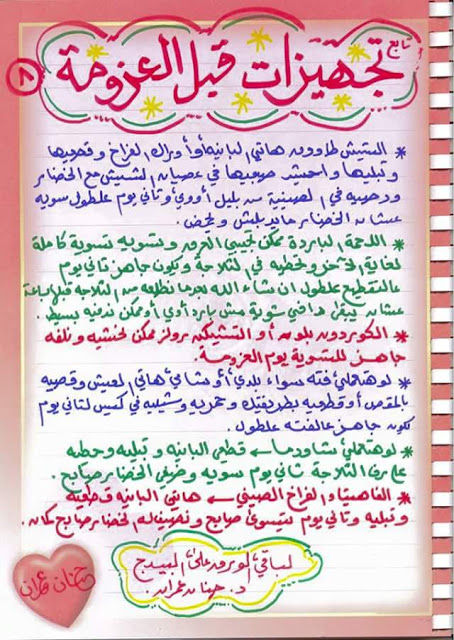 تابع
تجهيزات قبل العزومة
٨
* الشيش طاووق هاتي البانيه أو أوراك الفراخ و قطعيها
وتبليها و صفيها في عصيان الشيش مع الخضار
ورصيه في الصينية من بليل أوي وتاني يوم علطول سويه
عشان الخضار مايدبلش و يحمض.
* اللحمة الباردة ممكن تجيبي العرق و تسويه تسوية كاملة
لغاية الآخر و تحطيه في التلاجة و يكون جاهز تاني يوم
عالتقطيع علطول ان شاء الله بعد ما نطلعه من التلاجة قبلها بساعة
عشان يبقى دافي شوية مش بارد أوي أو ممكن ندفيه بسيط.
* الكوردون بلو أو التشيكن رولز ممكن نحشيه و نلفه
جاهز للتسوية يوم العزومة.
* لو هتعملي فته سواء بلدي أو شامي هاتي العيش وقصيه
بالمقص أو قطعيه بطريقتك و حمريه و شيليه في كيس لتاني يوم
يكون جاهز عالفته علطول.
* لو هتعملي شاورما ← قطعي البانيه و تبليه وحطيه
في التلاجة تاني يوم سويه و ضيفي الخضار صابح.
* الفاهيتا والفراخ الصيني ← هاتي البانيه قطعيه
و تبليه و تاني يوم تتسوى صابح و تضيفلها الخضار صابح كمان.
لباقي الورق على البيدج
د. حنان عمران.
حنان عمران